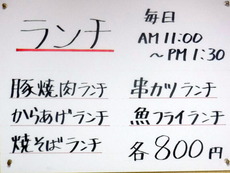 ランチ
毎日
AM 11:00
～PM 1:30
豚焼肉ランチ
串カツランチ
からあげランチ
魚フライランチ
焼そばランチ
各800円